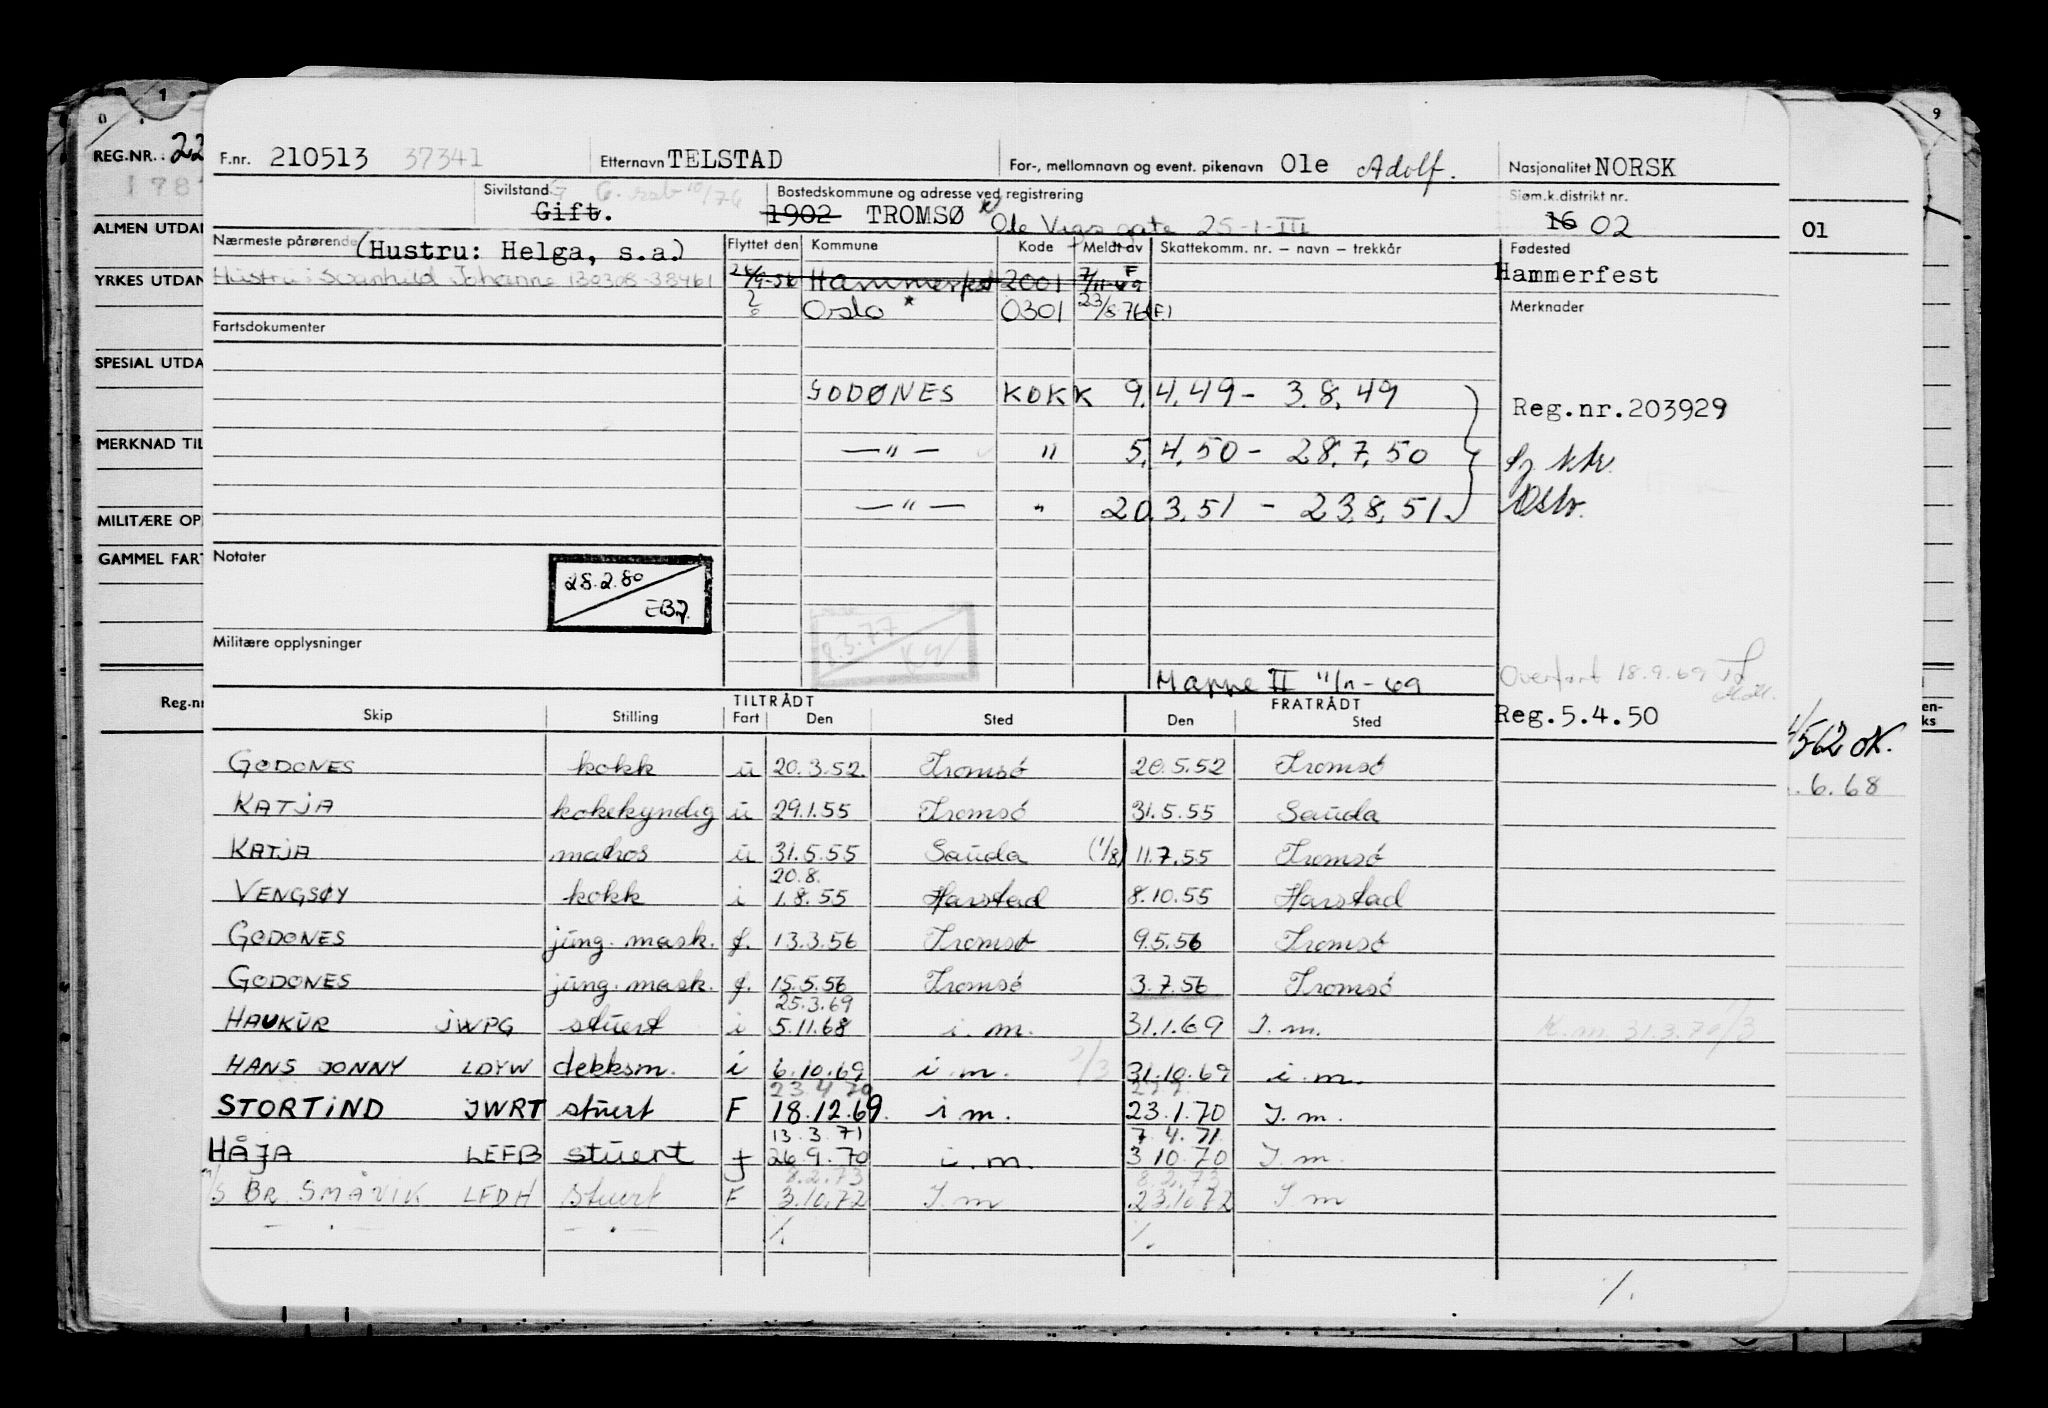 0 1 9
REG.NR.: 22
F.nr. 210513 37341 Etternavn TELSTAD For-, mellomnavn og event. pikenavn Ole Adolf. Nasjonalitet NORSK
Sivilstand Gift. Bostedskommune og adresse ved registrering Sjøm.k.distrikt nr.
1902 TROMSØ Ole Vigs gate 25-1-III 16 02 01
ALMEN UTDA
Nærmeste pårørende (Hustru: Helga, s.a.) Flyttet den Kommune Kode Meldt av Skattekomm. nr. – navn – trekkår Fødested
YRKES UTDAN
Hustru: Svanhild Johanne 130308-38461 Hammerfest 2001 7/11-69 F Hammerfest
Oslo * 0301 23/8 76 (F) Merknader
Fartsdokumenter
SPESIAL UTDA
GODØNES KOKK 9.4.49 – 3.8.49 Reg.nr.203929
MERKNAD TIL
— " — " 5.4.50 – 28.7.50
— " — " 20.3.51 – 23.8.51.
MILITÆRE OP
GAMMEL FART
Notater
28.2.80
8.3.77
Militære opplysninger
Mappe II 11/11-69 Overført 18.9.69
Reg.nr
TILTRÅDT FRATRÅDT
Skip Stilling Fart Den Sted Den Sted Reg.5.4.50
562 OK.
GODONES kokk u 20.3.52. Tromsø 20.5.52 Tromsø
. 6. 68
KATJA kokekyndig u 29.1.55 Tromsø 31.5.55 Sauda
KATJA matros u 31.5.55 Sauda (1/8) 11.7.55 Tromsø
20.8.
VENGSØY kokk i 1.8.55 Harstad 8.10.55 Harstad
GODONES jung. mask. f. 13.3.56 Tromsø 9.5.56 Tromsø
GODONES jung. mask. f. 15.5.56 Tromsø 3.7.56 Tromsø
25.3.69
HAUKUR JWPG stuert i 5.11.68 i.m. 31.1.69 I.m. K.m. 31.3.70
HANS JONNY LDYW dekksm. i 6.10.69 i.m. 31.10.69 i.m.
23 4 70
STORTIND JWRT stuert F 18.12.69. i m. 23.1.70 I.m.
13.3.71 7.4.71
HÅJA LEFB stuert f 26.9.70 i.m. 3.10.70 I.m.
8.2.73 8.2.73
M/S BR. SMÅVIK LFDH stuert F 3.10.72 I.m 23.10.72 I.m
— . — — . — ./. ./.
./.